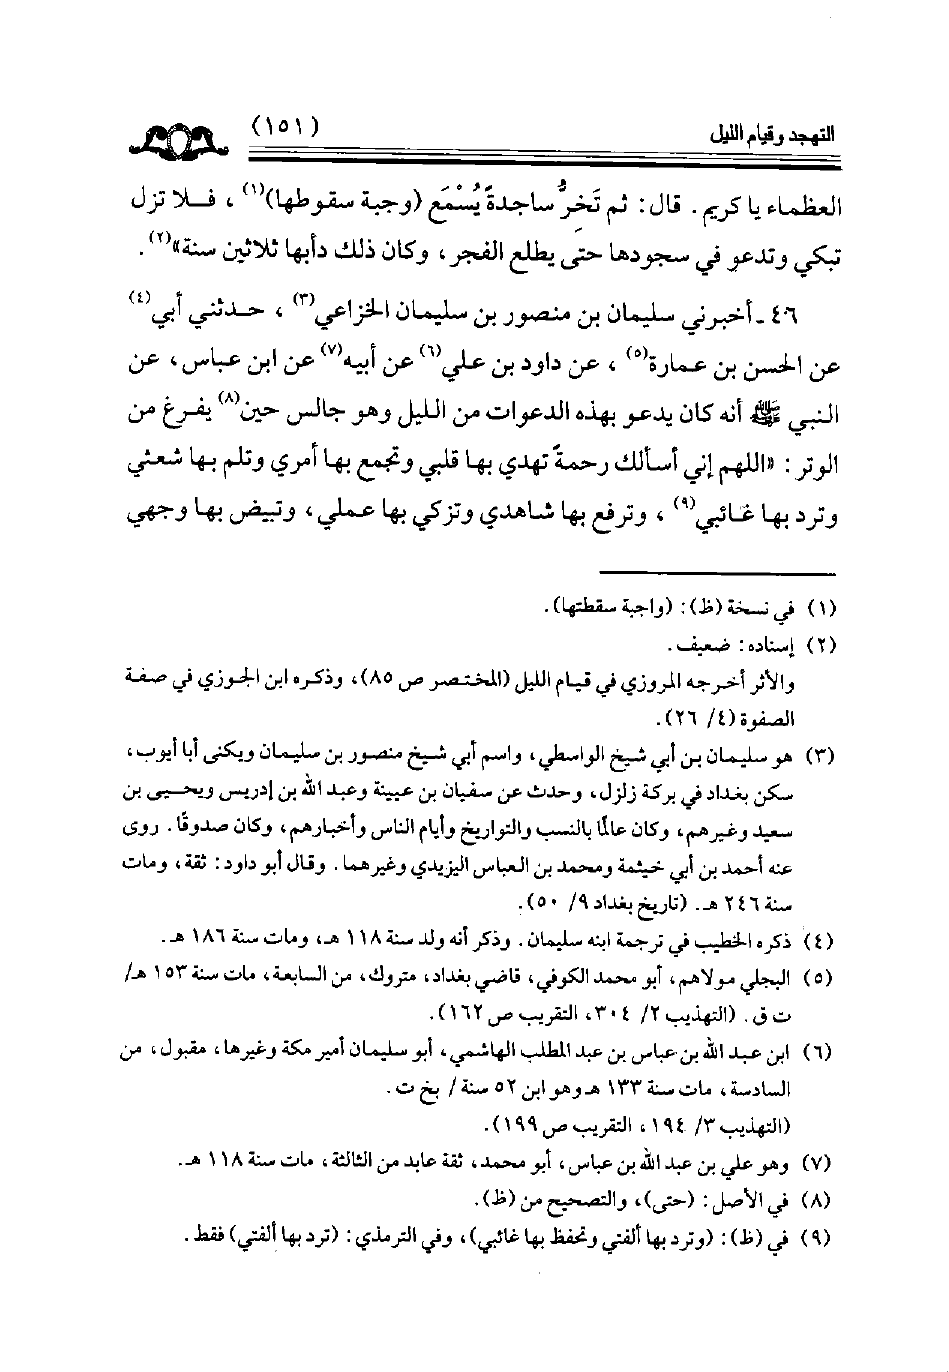 التهجد وقيام الليل (١٥١)
العظماء يا كريم. قال: ثم تَخرُّ ساجدةً يُسْمَع (وجبة سقوطها)(١)، فلا تزل
تبكي وتدعو في سجودها حتى يطلع الفجر، وكان ذلك دأبها ثلاثين سنة»(٢).
٤٦ ـ أخبرني سليمان بن منصور بن سليمان الخزاعي(٣)، حدثني أبي(٤)
عن الحسن بن عمارة(٥)، عن داود بن علي(٦) عن أبيه(٧) عن ابن عباس، عن
النبي ﷺ أنه كان يدعو بهذه الدعوات من الليل وهو جالس حين(٨) يفرغ من
الوتر: «اللهم إني أسألك رحمةً تهدي بها قلبي وتجمع بها أمري وتلم بها شعثي
وترد بها غائبي(٩)، وترفع بها شاهدي وتزكي بها عملي، وتبيض بها وجهي
(١) في نسخة (ظ): (واجبة سقطتها).
(٢) إسناده: ضعيف.
والأثر أخرجه المروزي في قيام الليل (المختصر ص ٨٥)، وذكره ابن الجوزي في صفة
الصفوة (٤/ ٢٦).
(٣) هو سليمان بن أبي شيخ الواسطي، واسم أبي شيخ منصور بن سليمان ويكنى أبا أيوب،
سكن بغداد في بركة زلزل، وحدث عن سفيان بن عيينة وعبد الله بن إدريس ويحيى بن
سعيد وغيرهم، وكان عالمًا بالنسب والتواريخ وأيام الناس وأخبارهم، وكان صدوقًا. روى
عنه أحمد بن أبي خيثمة ومحمد بن العباس اليزيدي وغيرهما. وقال أبو داود: ثقة، ومات
سنة ٢٤٦ هـ. (تاريخ بغداد ٩/ ٥٠).
(٤) ذكره الخطيب في ترجمة ابنه سليمان. وذكر أنه ولد سنة ١١٨ هـ، ومات سنة ١٨٦ هـ.
(٥) البجلي مولاهم، أبو محمد الكوفي، قاضي بغداد، متروك، من السابعة، مات سنة ١٥٣ هـ/
ت ق. (التهذيب ٢/ ٣٠٤، التقريب ص ١٦٢).
(٦) ابن عبد الله بن عباس بن عبد المطلب الهاشمي، أبو سليمان أمير مكة وغيرها، مقبول، من
السادسة، مات سنة ١٣٣ هـ وهو ابن ٥٢ سنة / بخ ت.
(التهذيب ٣/ ١٩٤، التقريب ص ١٩٩).
(٧) وهو علي بن عبد الله بن عباس، أبو محمد، ثقة عابد من الثالثة، مات سنة ١١٨ هـ.
(٨) في الأصل: (حتى)، والتصحيح من (ظ).
(٩) في (ظ): (وترد بها ألفتي وتحفظ بها غائبي)، وفي الترمذي: (ترد بها ألفتي) فقط.